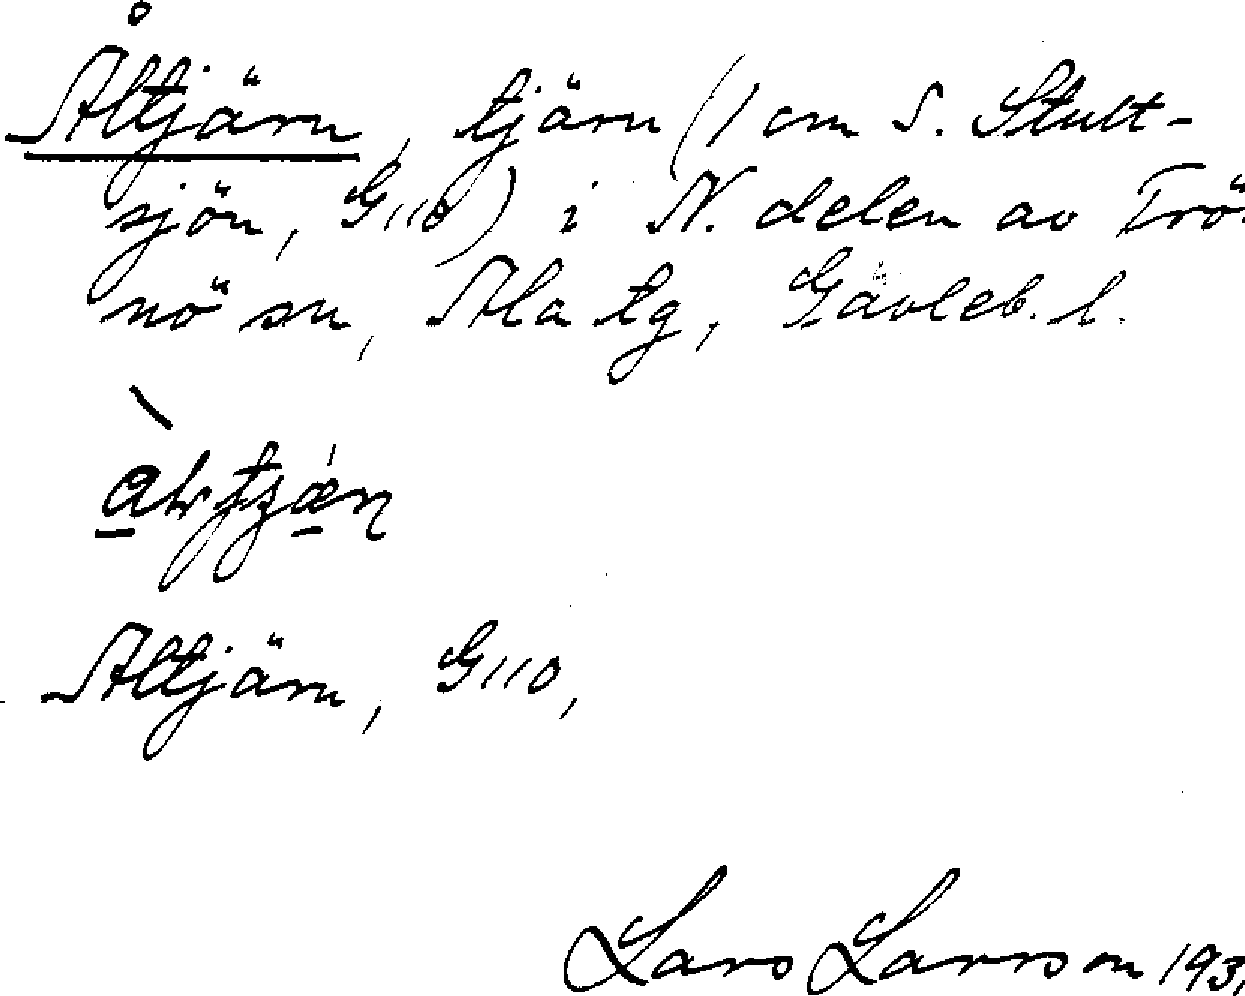 Åltjärn, tjärn (1 cm S. Stult-
sjön, G110) i N. delen av Trö-
nö sn, Ala tg, Gävleb. l.
Altjärn, G110,
Lars Larsson 193